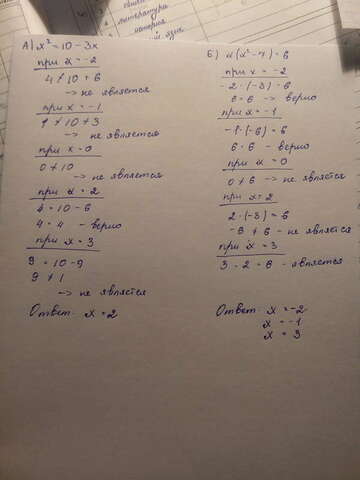 литература
А) x² = 10 - 3x
при x = -2
4 ≠ 10 + 6
-> не является
при x = -1
1 ≠ 10 + 3
-> не является
при x = 0
0 ≠ 10
-> не является
при x = 2
4 = 10 - 6
4 = 4 - верно
при x = 3
9 = 10 - 9
9 ≠ 1
-> не является
Ответ: x = 2
Б) x(x² - 7) = 6
при x = -2
-2 · (-3) = 6
6 = 6 -> верно
при x = -1
-1 · (-6) = 6
6 = 6 - верно
при x = 0
0 ≠ 6 -> не является
при x = 2
2 · (-3) = 6
-6 ≠ 6 - не является
при x = 3
3 · 2 = 6 - является
Ответ: x = -2
x = -1
x = 3